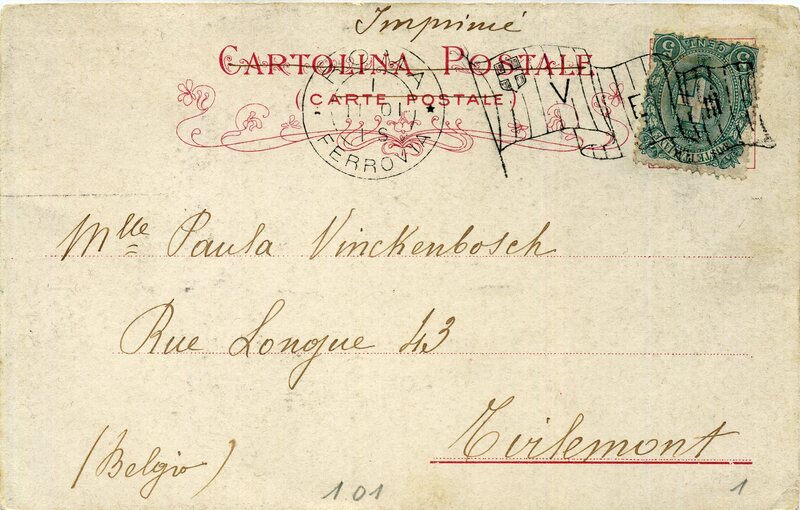 Imprimé
CARTOLINA POSTALE
(CARTE POSTALE)
FERROVIA
V E III
5 CENT. 5
Mlle Paula Vinckenbosch
Rue Longue 43
Tirlemont
(Belgio)
1 01
1